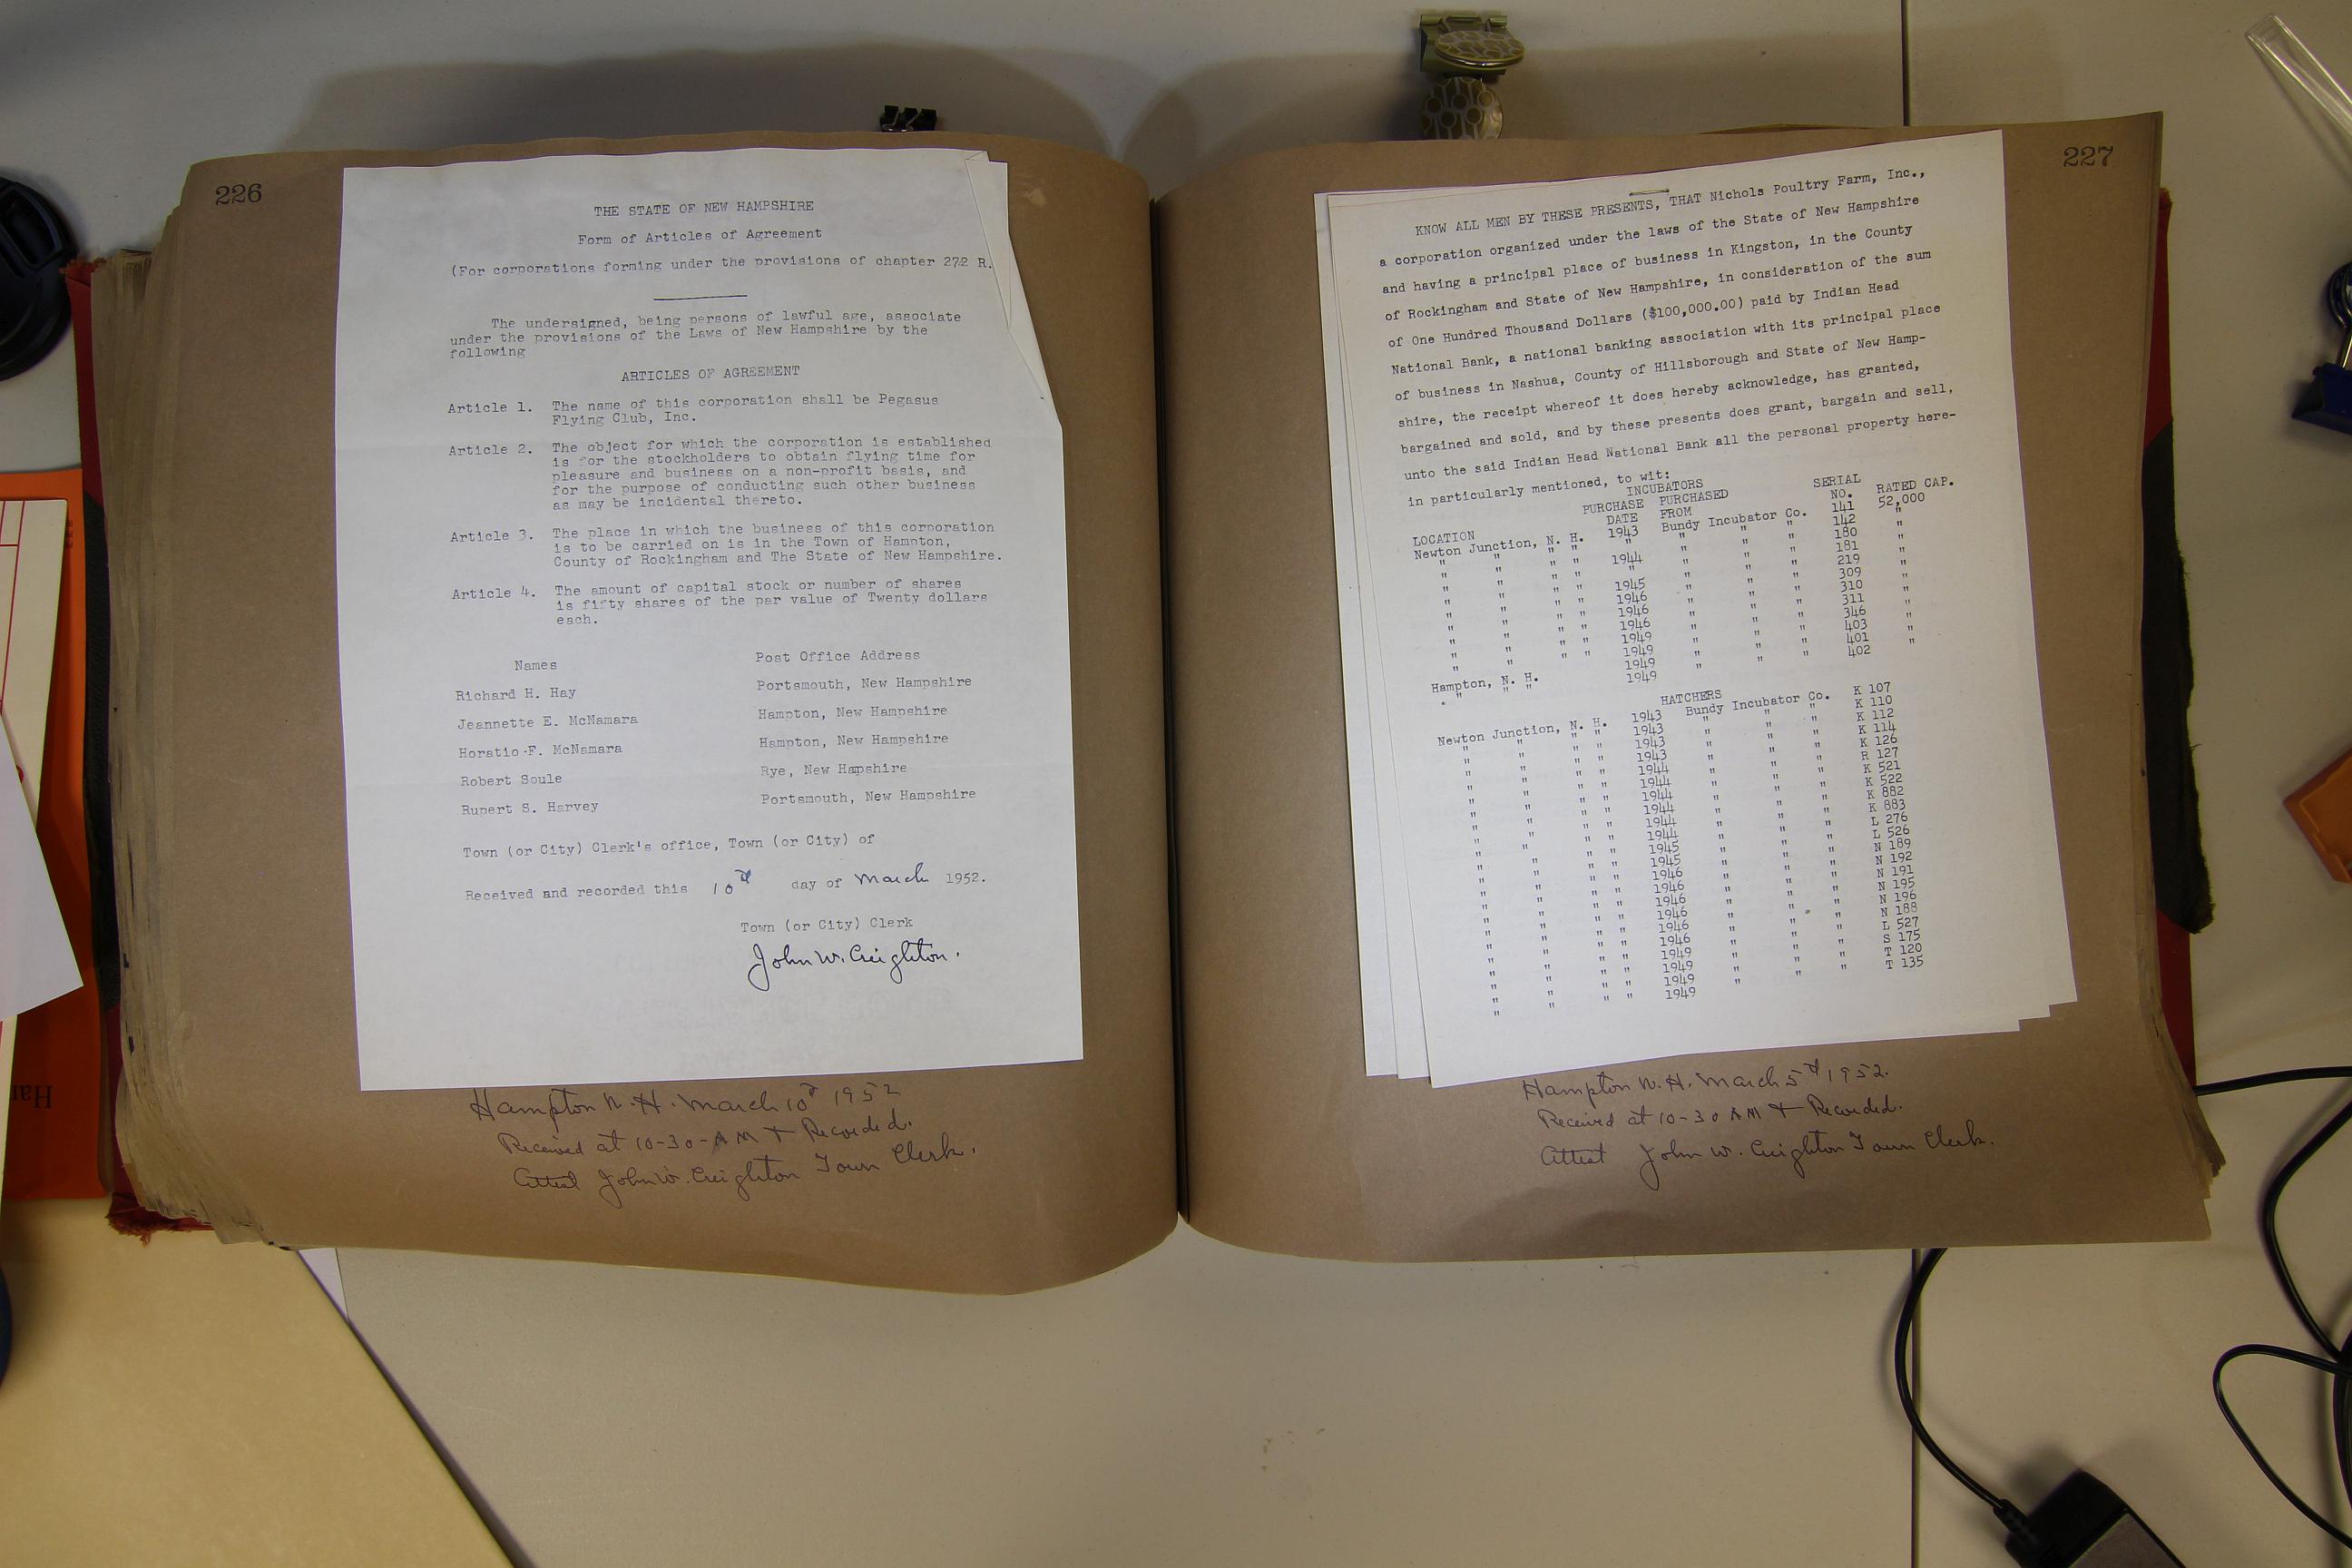 226
THE STATE OF NEW HAMPSHIRE
Form of Articles of Agreement
(For corporations forming under the provisions of chapter 272 R.
The undersigned, being persons of lawful age, associate
under the provisions of the Laws of New Hampshire by the
following
ARTICLES OF AGREEMENT
Article 1. The name of this corporation shall be Pegasus
Flying Club, Inc.
Article 2. The object for which the corporation is established
is for the stockholders to obtain flying time for
pleasure and business on a non-profit basis, and
for the purpose of conducting such other business
as may be incidental thereto.
Article 3. The place in which the business of this corporation
is to be carried on is in the Town of Hampton,
County of Rockingham and The State of New Hampshire.
Article 4. The amount of capital stock or number of shares
is fifty shares of the par value of Twenty dollars
each.
Names Post Office Address
Richard H. Hay Portsmouth, New Hampshire
Jeannette E. McNamara Hampton, New Hampshire
Horatio F. McNamara Hampton, New Hampshire
Robert Soule Rye, New Hapshire
Rupert S. Harvey Portsmouth, New Hampshire
Town (or City) Clerk's office, Town (or City) of
Received and recorded this 10th day of March 1952.
Town (or City) Clerk
John W. Creighton.
Hampton N.H. March 10th 1952
Received at 10-30-AM & Recorded.
Attest John W. Creighton Town Clerk.
227
KNOW ALL MEN BY THESE PRESENTS, THAT Nichols Poultry Farm, Inc.,
a corporation organized under the laws of the State of New Hampshire
and having a principal place of business in Kingston, in the County
of Rockingham and State of New Hampshire, in consideration of the sum
of One Hundred Thousand Dollars ($100,000.00) paid by Indian Head
National Bank, a national banking association with its principal place
of business in Nashua, County of Hillsborough and State of New Hamp-
shire, the receipt whereof it does hereby acknowledge, has granted,
bargained and sold, and by these presents does grant, bargain and sell,
unto the said Indian Head National Bank all the personal property here-
in particularly mentioned, to wit:
INCUBATORS
LOCATION PURCHASE DATE PURCHASED FROM SERIAL NO. RATED CAP.
Newton Junction, N. H. 1943 Bundy Incubator Co. 141 52,000
" " " " " " " " 142 "
" " " " 1944 " " " 180 "
" " " " " " " " 181 "
" " " " 1945 " " " 219 "
" " " " 1946 " " " 309 "
" " " " 1946 " " " 310 "
" " " " 1946 " " " 311 "
" " " " 1949 " " " 346 "
" " " " 1949 " " " 403 "
Hampton, N. H. 1949 " " " 401 "
" " " 1949 " " " 402 "
HATCHERS
Newton Junction, N. H. 1943 Bundy Incubator Co. K 107
" " " " 1943 " " " K 110
" " " " 1943 " " " K 112
" " " " 1943 " " " K 114
" " " " 1944 " " " K 126
" " " " 1944 " " " R 127
" " " " 1944 " " " K 521
" " " " 1944 " " " K 522
" " " " 1944 " " " K 882
" " " " 1944 " " " K 883
" " " " 1945 " " " L 276
" " " " 1945 " " " L 526
" " " " 1946 " " " N 189
" " " " 1946 " " " N 192
" " " " 1946 " " " N 191
" " " " 1946 " " " N 195
" " " " 1946 " " " N 196
" " " " 1946 " " " N 188
" " " " 1949 " " " L 527
" " " " 1949 " " " S 175
" " " " 1949 " " " T 120
" " " " 1949 " " " T 135
Hampton N.H. March 5th 1952.
Received at 10-30 AM & Recorded.
Attest John W. Creighton Town Clerk.